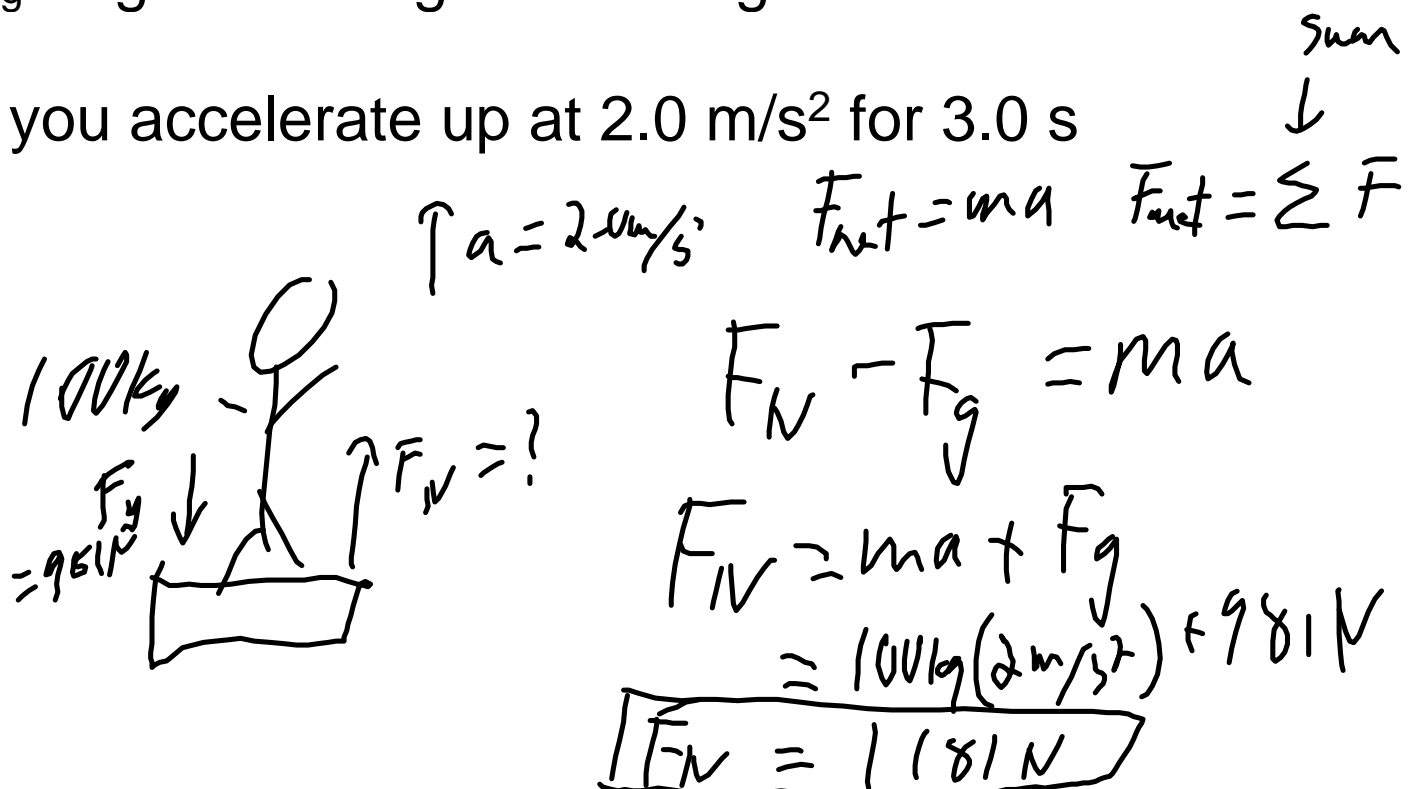 you accelerate up at 2.0 m/s² for 3.0 s
sum
↓
↑ a = 2.0m/s²
Fnet = ma Fnet = Σ F
100kg
Fg ↓
= 981N
↑ FN = ?
FN - Fg = ma
FN = ma + Fg
= 100kg(2m/s²) + 981N
FN = 1181N